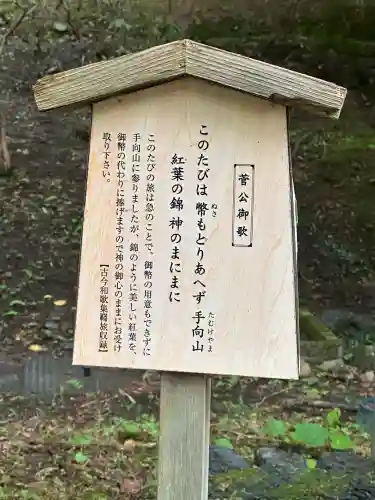 菅公御歌
このたびは 幣もとりあへず 手向山
ぬき
たむけやま
紅葉の錦 神のまにまに
このたびの旅は急のことで、御幣の用意もできずに
手向山に参りましたが、錦のように美しい紅葉を、
御幣の代わりに捧げますので神の御心のままにお受け
取り下さい。
【古今和歌集羇旅収録】